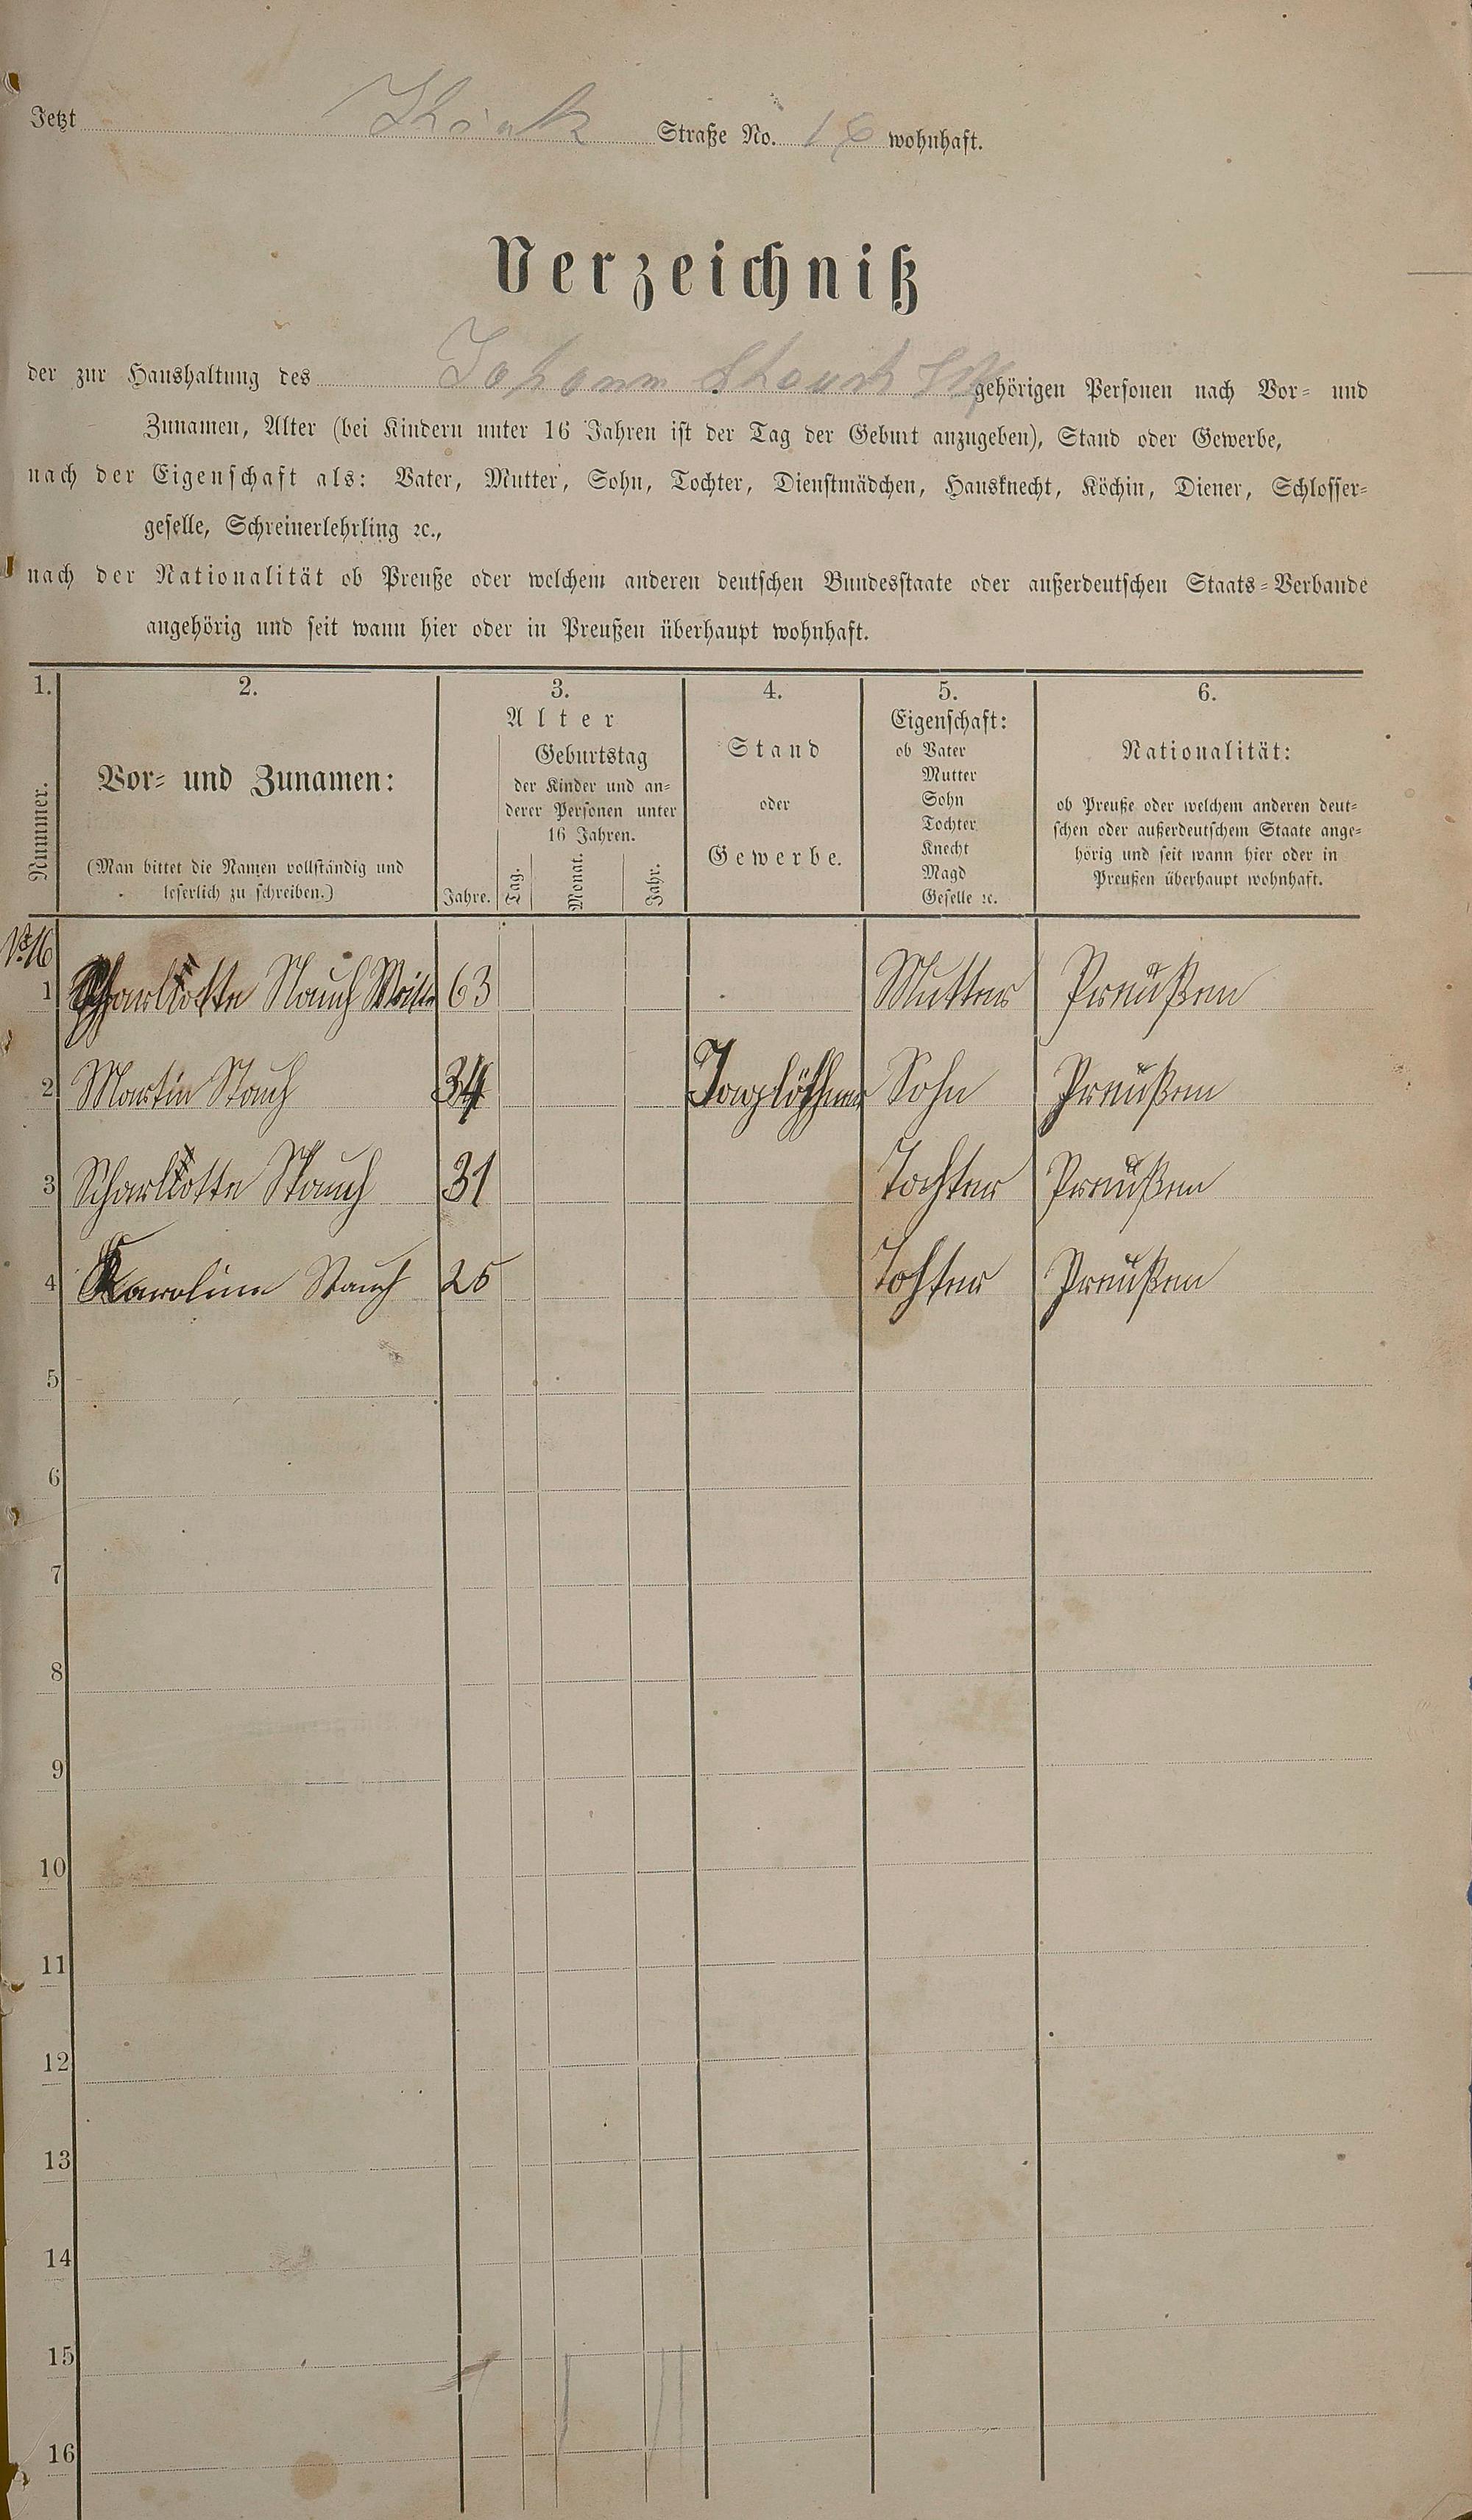 Jetzt Straße No. 16 wohnhaft.
Verzeichniß
der zur Haushaltung des Johann Stauch gehörigen Personen nach Vor- und
Zunamen, Alter (bei Kindern unter 16 Jahren ist der Tag der Geburt anzugeben), Stand oder Gewerbe,
nach der Eigenschaft als: Vater, Mutter, Sohn, Tochter, Dienstmädchen, Hausknecht, Köchin, Diener, Schlosser-
geselle, Schreinerlehrling ꝛc.,
nach der Nationalität ob Preuße oder welchem anderen deutschen Bundesstaate oder außerdeutschen Staats-Verbande
angehörig und seit wann hier oder in Preußen überhaupt wohnhaft.
1. 2. 3. 4. 5. 6.
Nummer.
Vor- und Zunamen:
(Man bittet die Namen vollständig und
leserlich zu schreiben.)
Alter
Jahre.
Geburtstag
der Kinder und an-
derer Personen unter
16 Jahren.
Tag. Monat. Jahr.
Stand
oder
Gewerbe.
Eigenschaft:
ob Vater
Mutter
Sohn
Tochter
Knecht
Magd
Geselle ꝛc.
Nationalität:
ob Preuße oder welchem anderen deut-
schen oder außerdeutschem Staate ange-
hörig und seit wann hier oder in
Preußen überhaupt wohnhaft.
No 16
1 Scharlotte Stauch 63 Mutter Preußen
2 Martin Stauch 34 Sohn Preußen
3 Scharlotte Stauch 31 Tochter Preußen
4 Karoline Stauch 25 Tochter Preußen
5
6
7
8
9
10
11
12
13
14
15
16